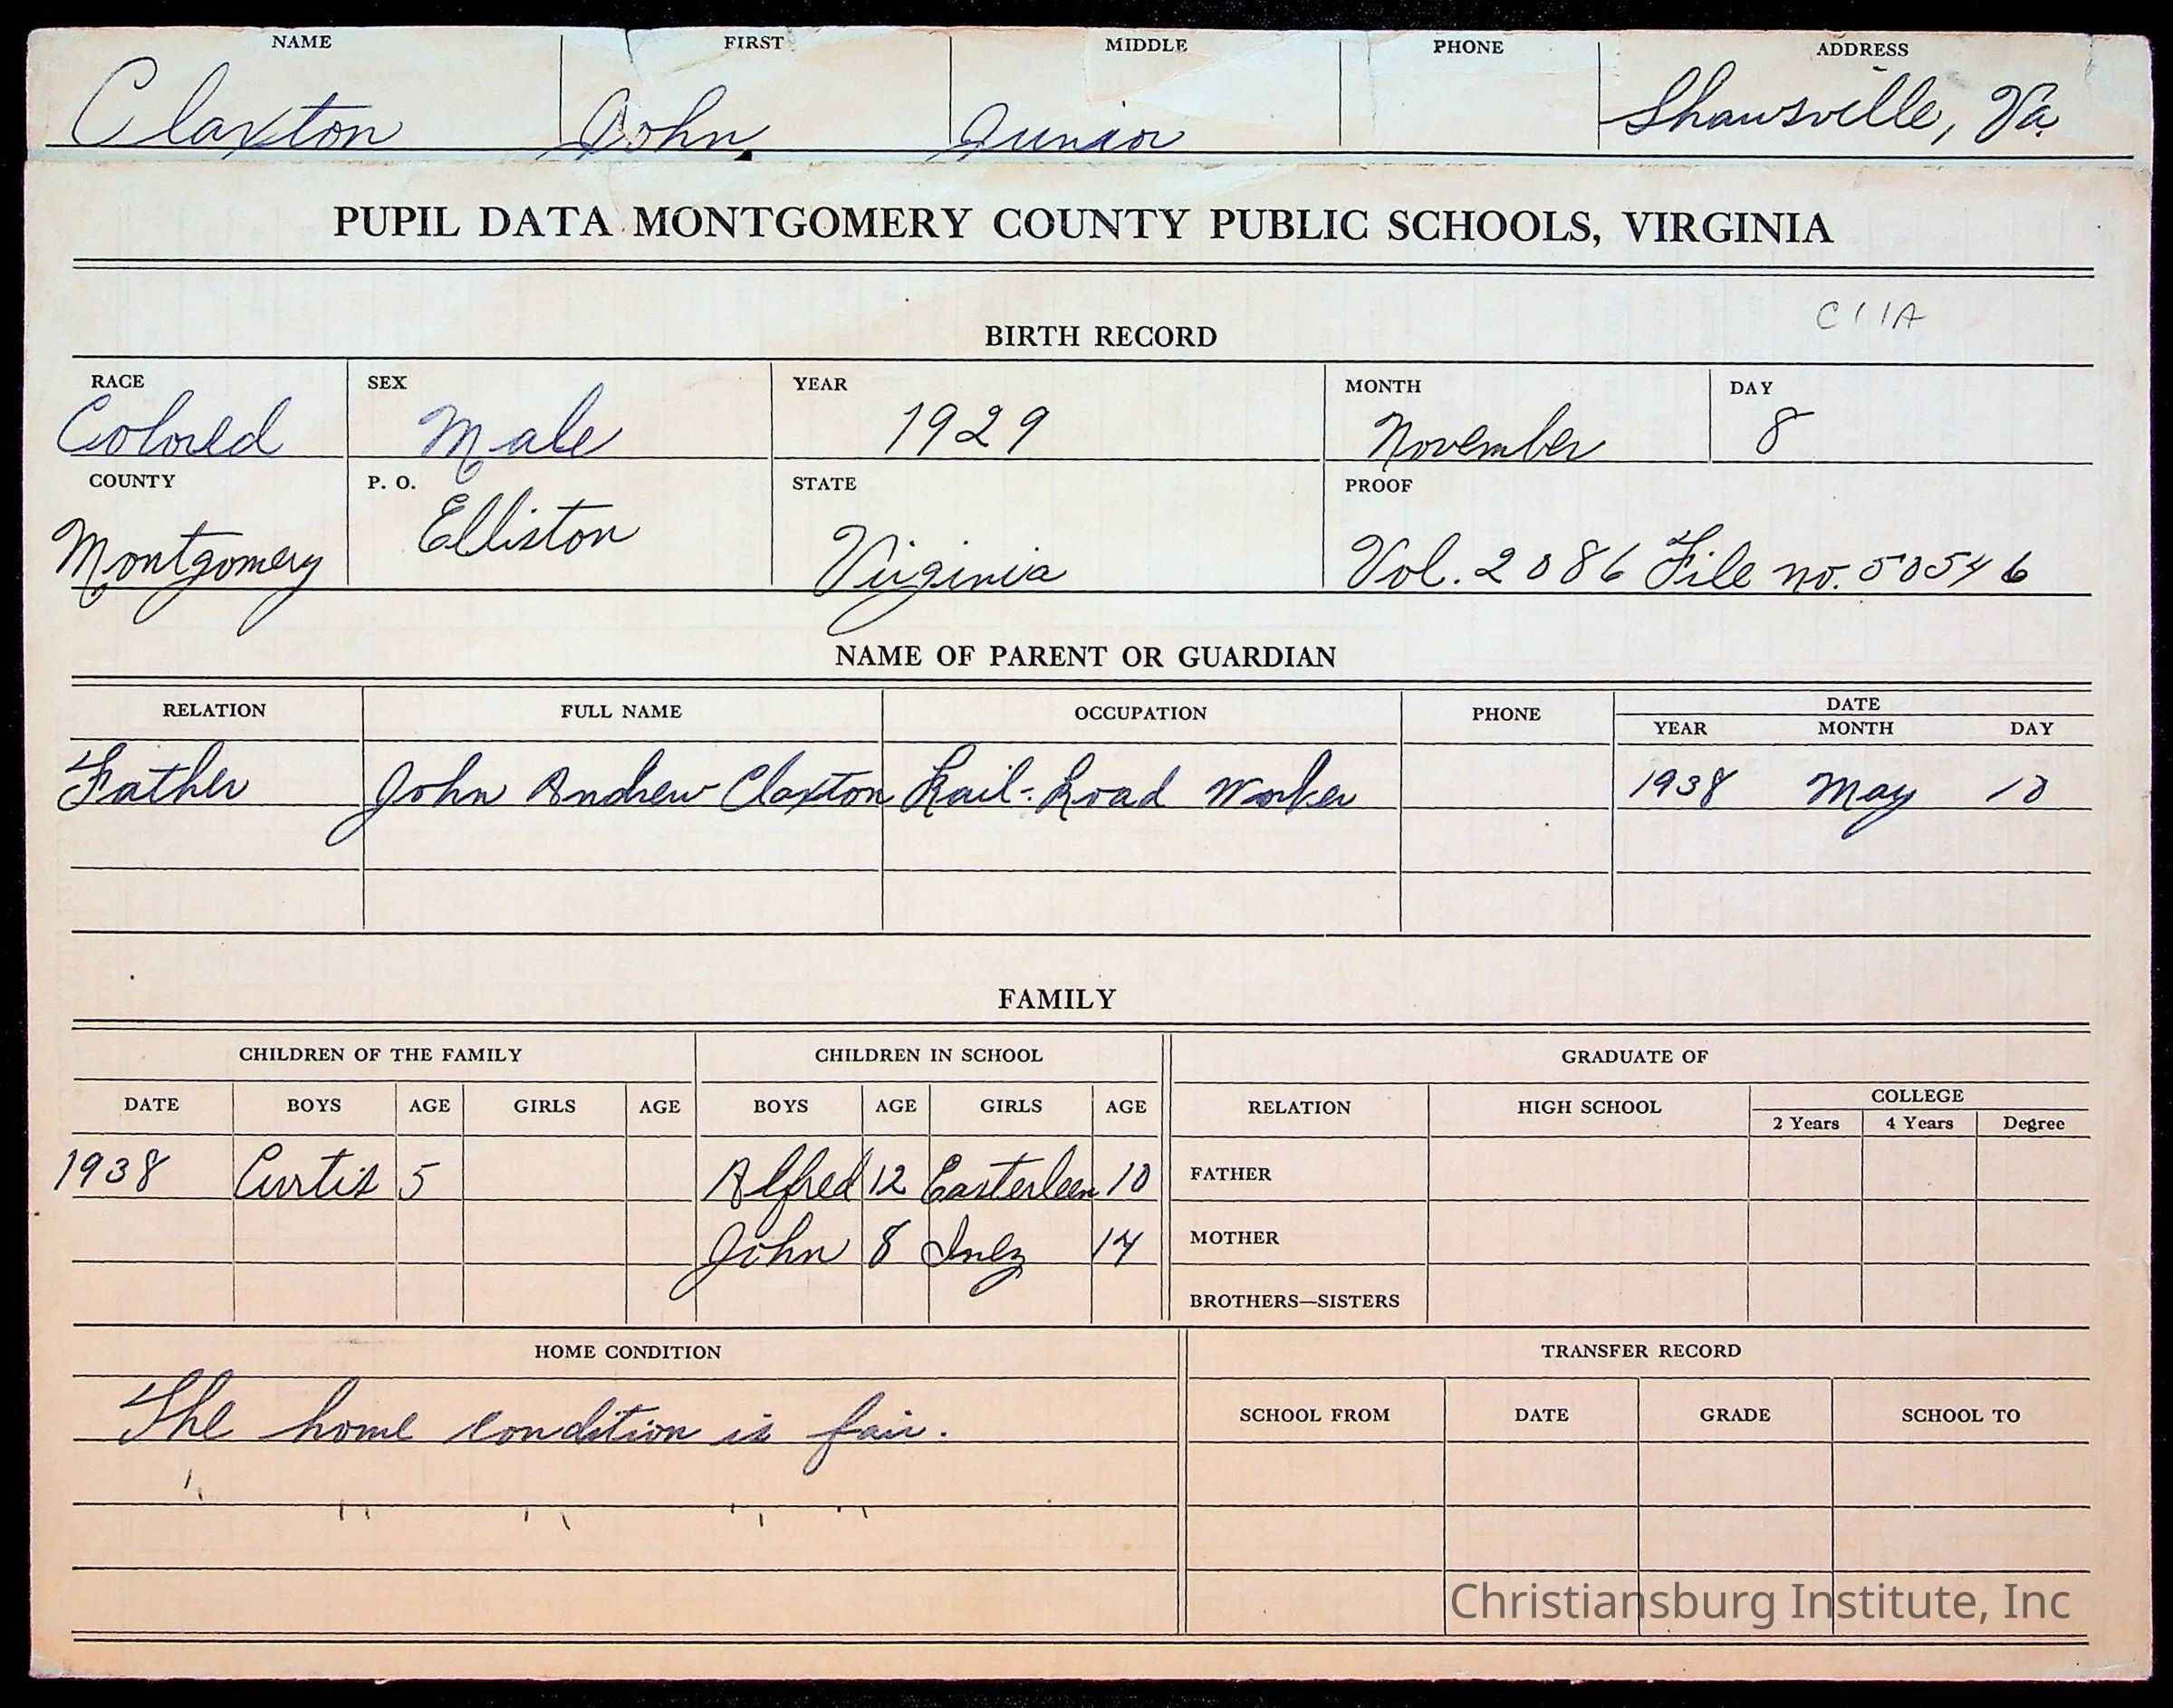 NAME FIRST MIDDLE PHONE ADDRESS
Claxton John Junior Shawsville, Va.
PUPIL DATA MONTGOMERY COUNTY PUBLIC SCHOOLS, VIRGINIA
C11A
BIRTH RECORD
RACE SEX YEAR MONTH DAY
Colored Male 1929 November 8
COUNTY P. O. STATE PROOF
Montgomery Elliston Virginia Vol. 2086 File no. 50546
NAME OF PARENT OR GUARDIAN
RELATION FULL NAME OCCUPATION PHONE DATE
YEAR MONTH DAY
Father John Andrew Claxton Rail-Road Worker 1938 May 10
FAMILY
CHILDREN OF THE FAMILY CHILDREN IN SCHOOL GRADUATE OF
DATE BOYS AGE GIRLS AGE BOYS AGE GIRLS AGE RELATION HIGH SCHOOL COLLEGE
2 Years 4 Years Degree
1938 Curtis 5 Alfred 12 Easterleen 10 FATHER
John 8 Inez 14 MOTHER
BROTHERS—SISTERS
HOME CONDITION TRANSFER RECORD
The home condition is fair. SCHOOL FROM DATE GRADE SCHOOL TO
Christiansburg Institute, Inc